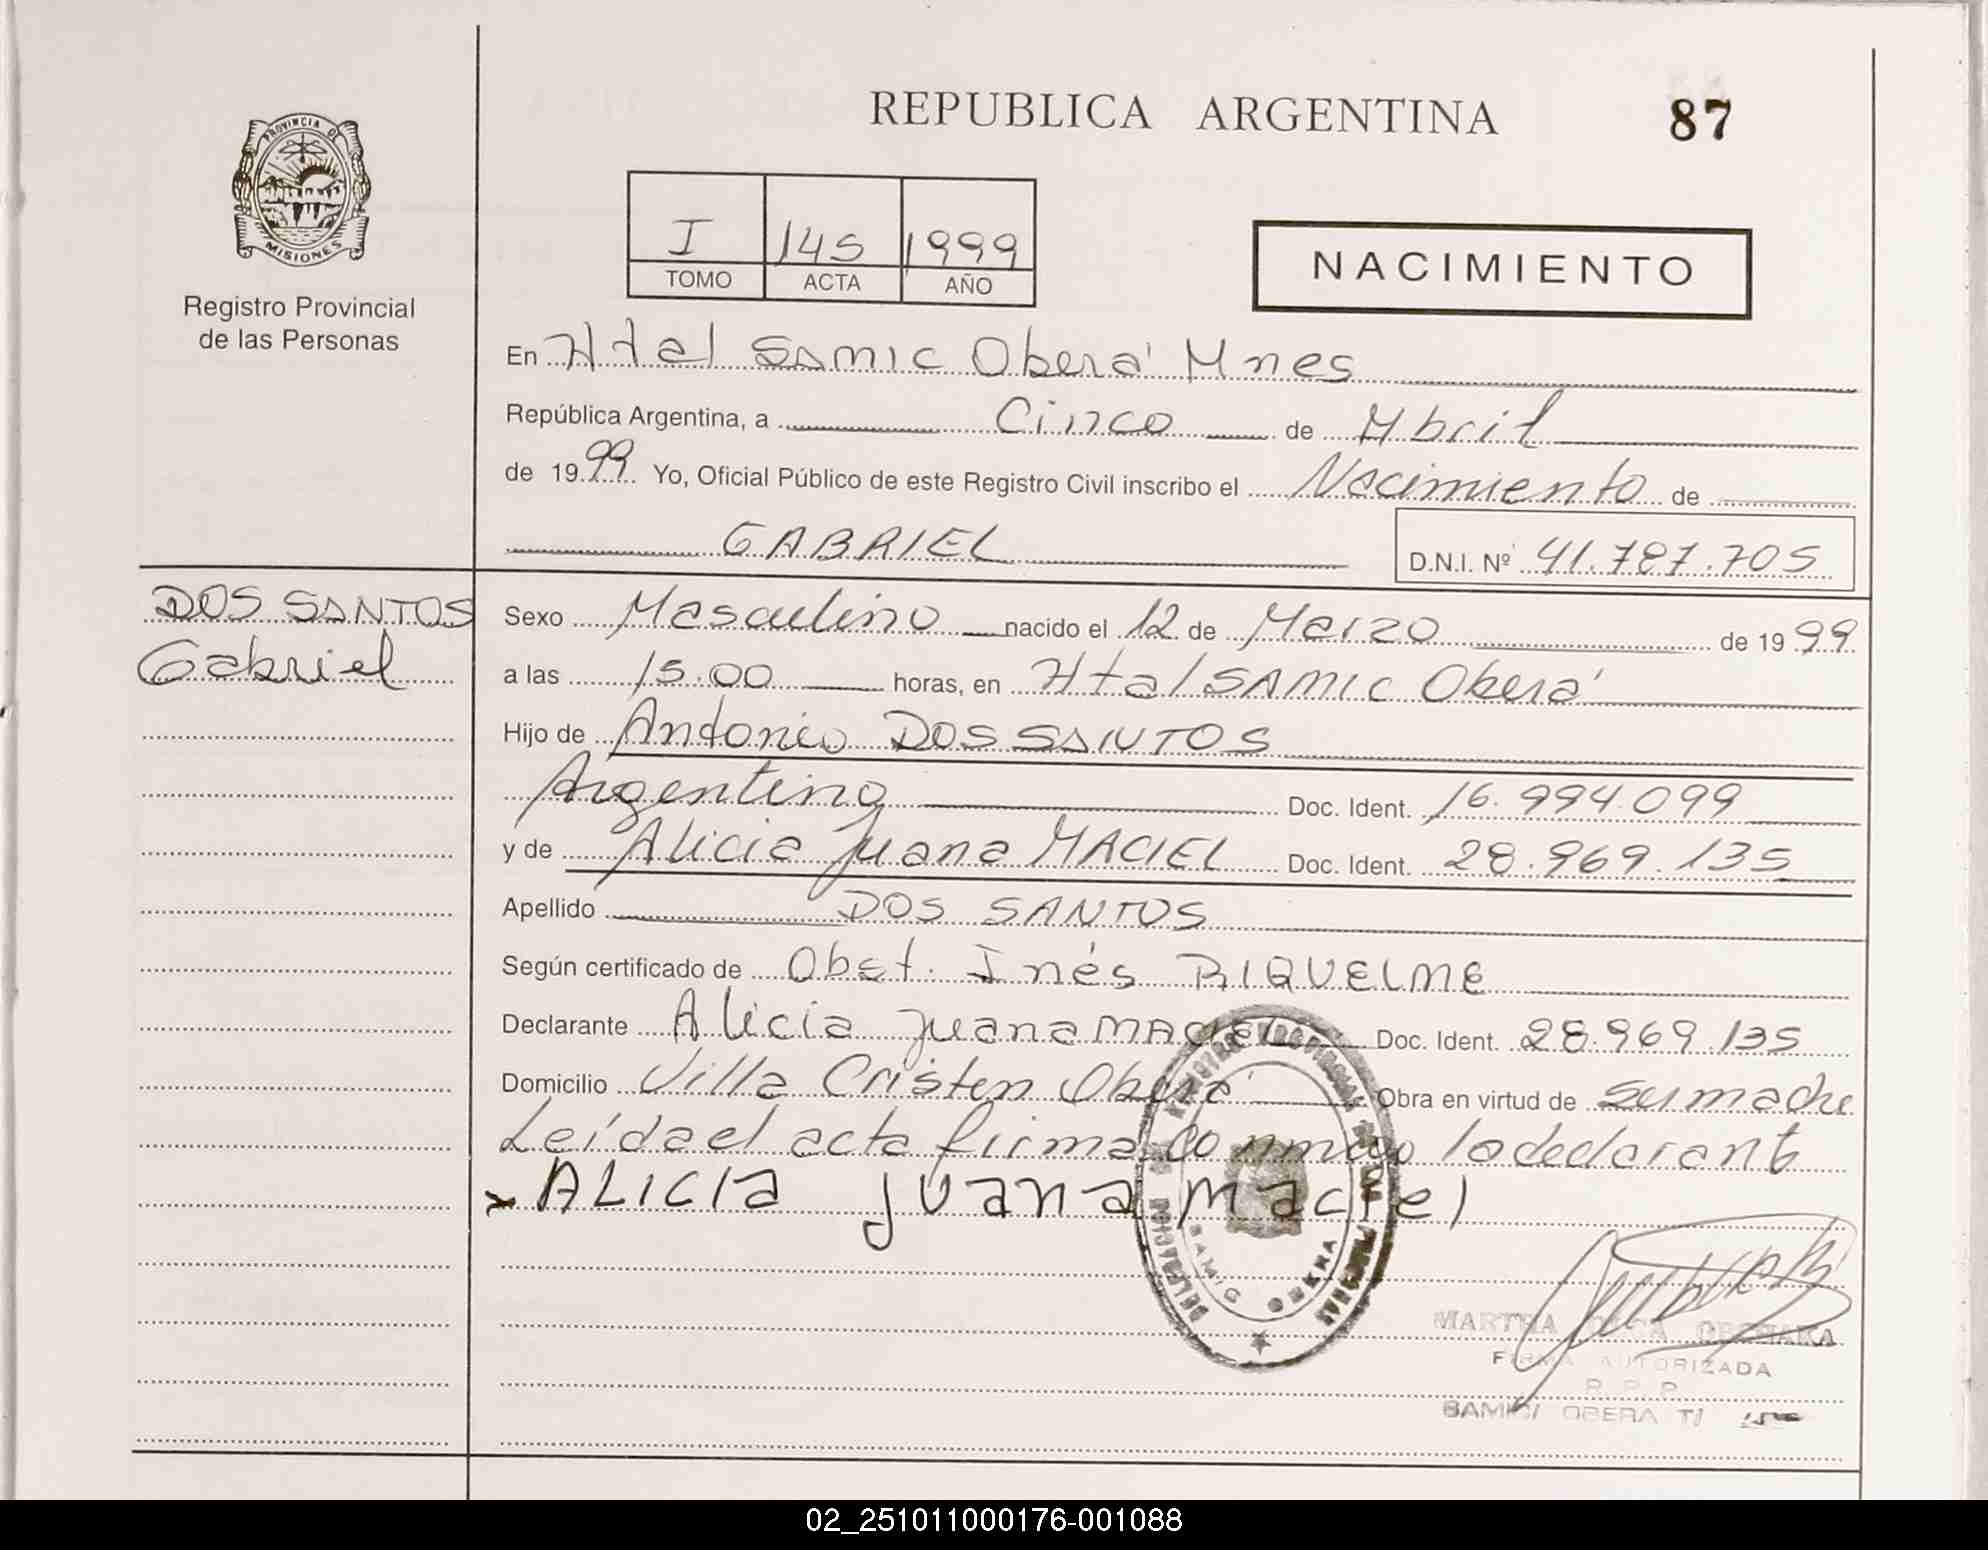 REPUBLICA ARGENTINA 87
PROVINCIA DE
MISIONES
Registro Provincial
de las Personas
I 145 1999
TOMO ACTA AÑO
NACIMIENTO
En Htal SAMIC Oberá Mnes
República Argentina, a Cinco de Abril
de 1999 Yo, Oficial Público de este Registro Civil inscribo el Nacimiento de
GABRIEL D.N.I. Nº 41.787.705
DOS SANTOS
Gabriel
Sexo Masculino nacido el 12 de Marzo de 1999
a las 15.00 horas, en Htal SAMIC Oberá
Hijo de Antonio DOS SANTOS
Argentino Doc. Ident. 16.994.099
y de Alicia Juana MACIEL Doc. Ident. 28.969.135
Apellido DOS SANTOS
Según certificado de Obst. Inés RIQUELME
Declarante Alicia Juana MACIEL Doc. Ident. 28.969.135
Domicilio Villa Cristen Oberá Obra en virtud de su madre
Leída el acta firma conmigo la declarant
x ALICIA Juana Maciel
DELEGACION DEL REGISTRO PROVINCIAL DE LAS PERSONAS
SAMIC OBERA
MARTHA
FIRMA AUTORIZADA
R.P.P.
SAMIC/ OBERA
02_251011000176-001088